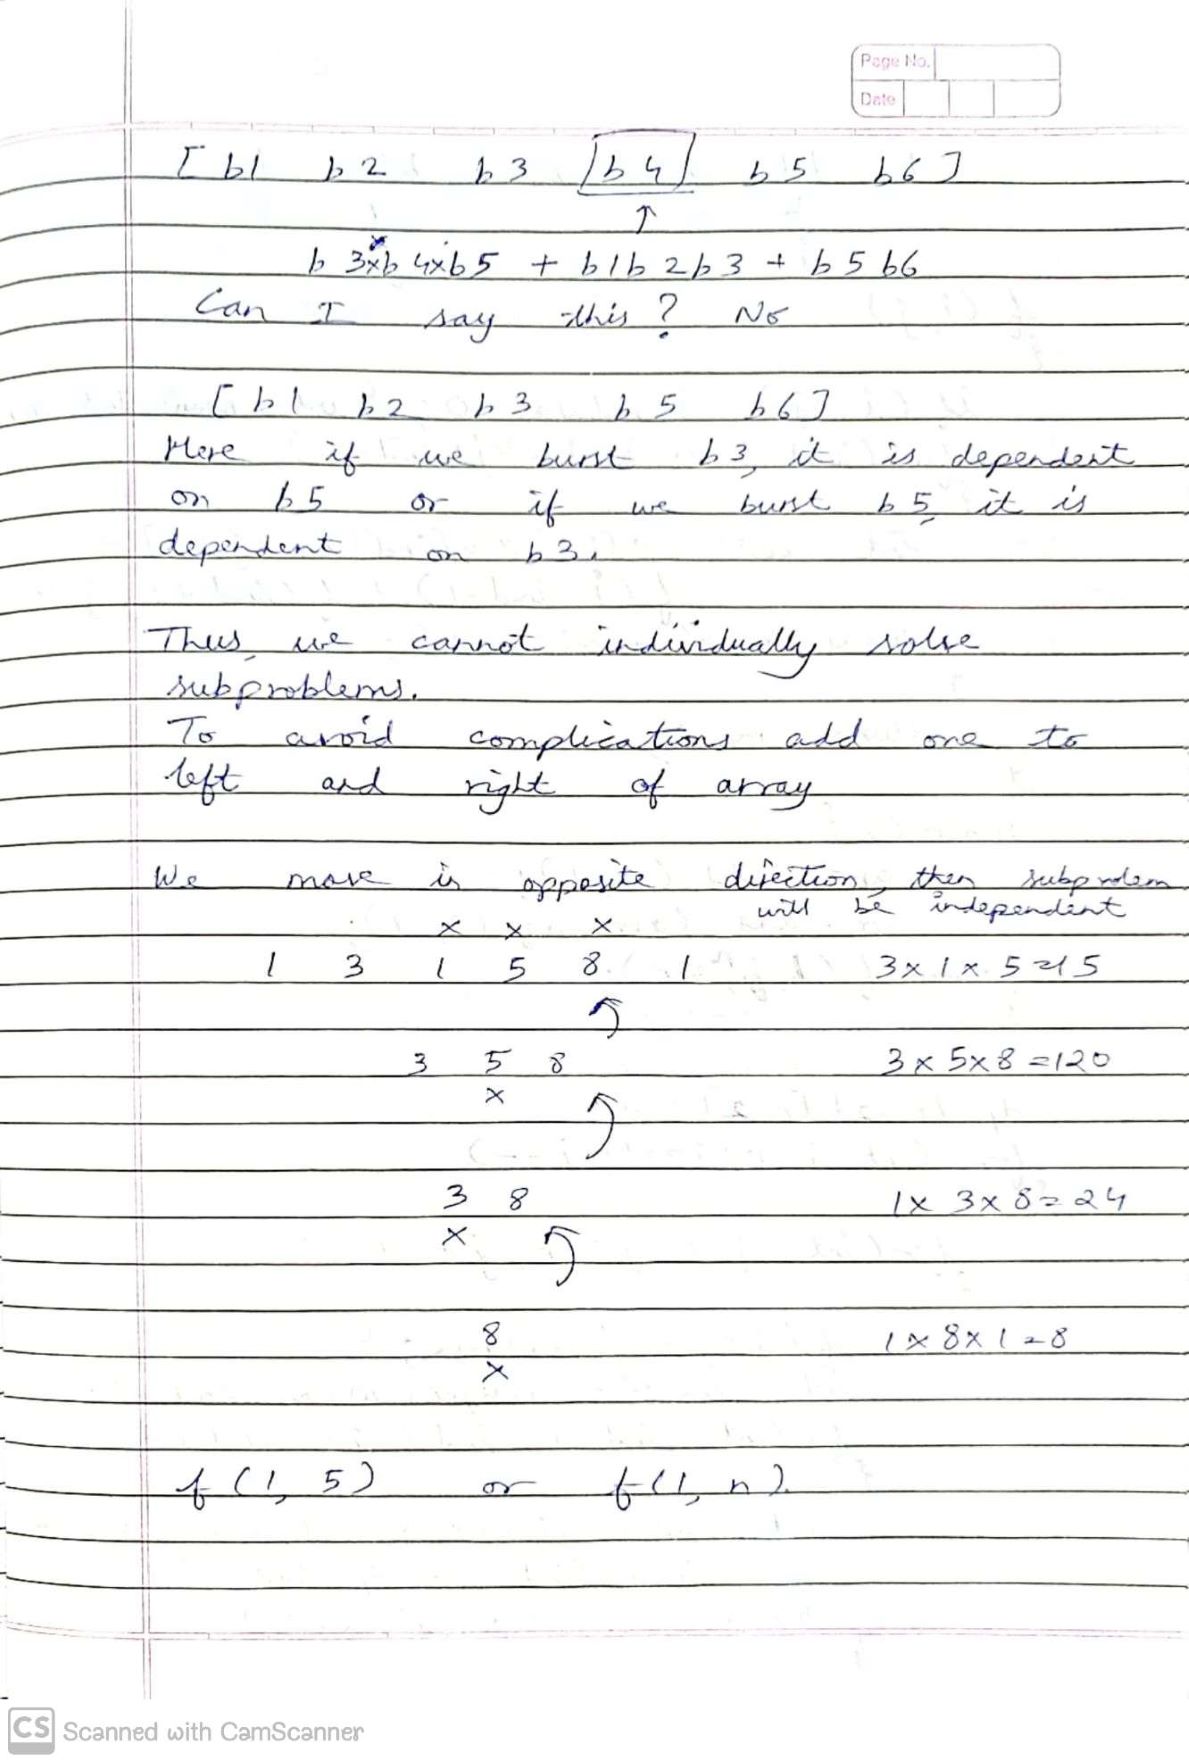 Page No.
Date
[ b1 b2 b3 b4 b5 b6 ]
↑
b3×b4×b5 + b1b2b3 + b5b6
Can I say this? No
[ b1 b2 b3 b5 b6 ]
Here if we burst b3, it is dependent
on b5 or if we burst b5, it is
dependent on b3.
Thus, we cannot individually solve
subproblems.
To avoid complications add one to
left and right of array
We move in opposite direction, then subprolem
will be independent
× × ×
1 3 1 5 8 1 3×1×5=15
3 5 8 3×5×8=120
×
3 8 1×3×8=24
×
8 1×8×1=8
×
f(1, 5) or f(1, n).
CS Scanned with CamScanner